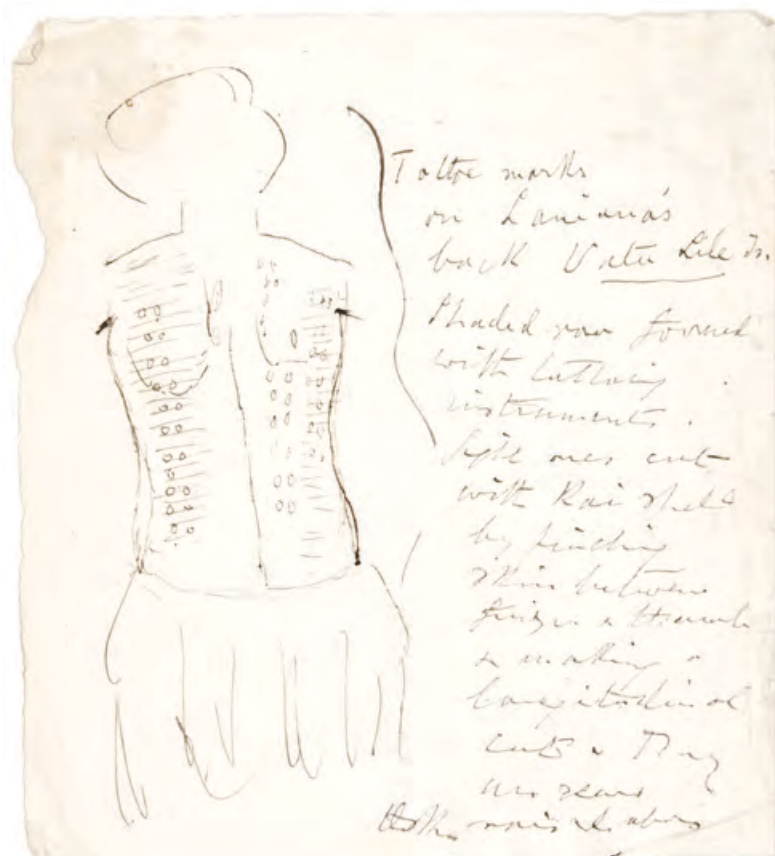 Tattoe marks
on Laniana's
back Vatu Lele Is.
Shaded row formed
with tattooing
instruments.
Light ones cut
with Kai shell
by pinching
skin between
finger & thumb
& making a
longitudinal
cut & They
are scars
raised above